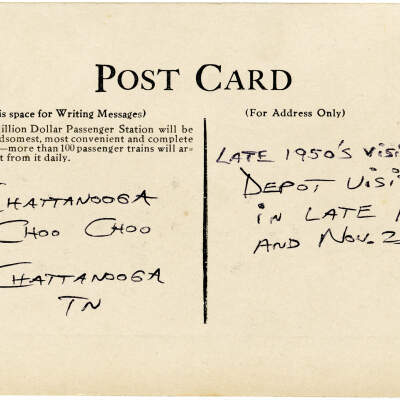 POST CARD
is space for Writing Messages)
(For Address Only)
illion Dollar Passenger Station will be
dsomest, most convenient and complete
—more than 100 passenger trains will ar-
t from it daily.
CHATTANOOGA
CHOO CHOO
CHATTANOOGA
TN
LATE 1950'S VISI
DEPOT VISI
IN LATE
AND NOV. 2